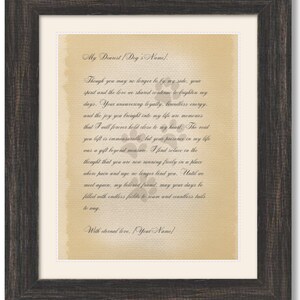 My Dearest [Dog's Name],
Though you may no longer be by my side, your
spirit and the love we shared continue to brighten my
days. Your unwavering loyalty, boundless energy,
and the joy you brought into my life are memories
that I will forever hold close to my heart. The void
you left is immeasurable, but your presence in my life
was a gift beyond measure. I find solace in the
thought that you are now running freely in a place
where pain and age no longer bind you. Until we
meet again, my beloved friend, may your days be
filled with endless fields to roam and countless tails
to wag.
With eternal love, [Your Name]